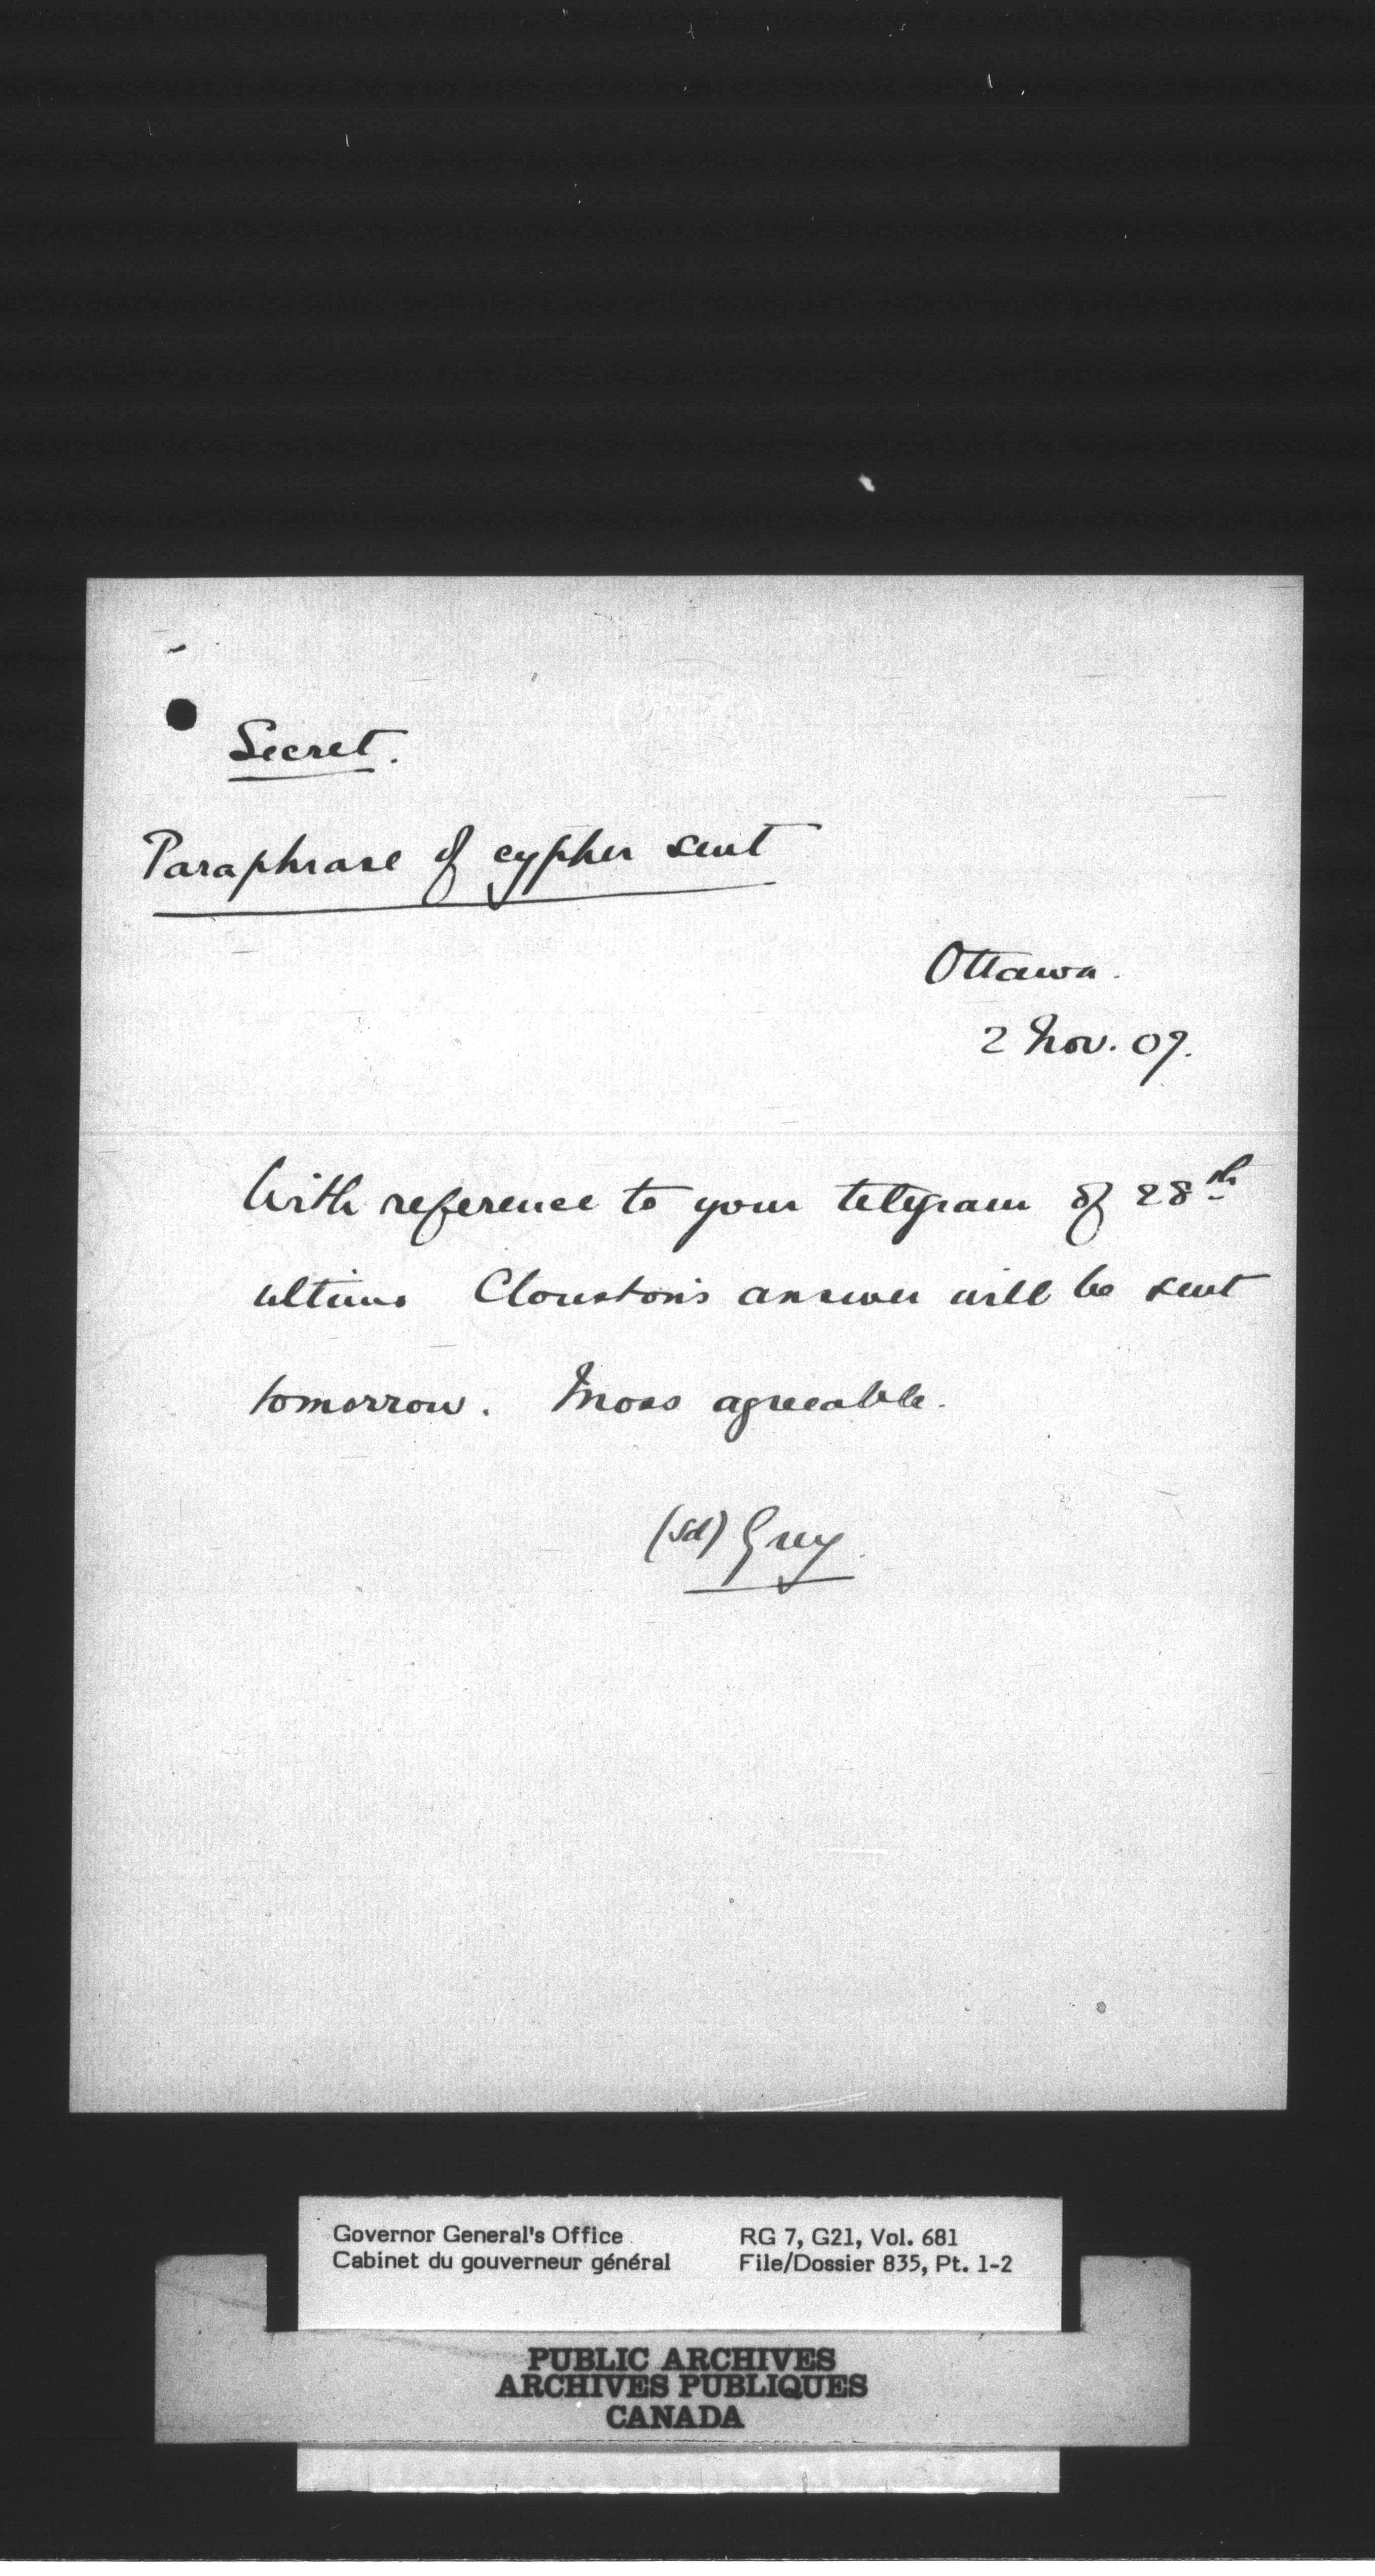 Secret.
Paraphrase of cypher sent
Ottawa.
2 Nov. 09.
With reference to your telegram of 28th
ultimo Clouston's answer will be sent
tomorrow. Moss agreeable.
(sd) Grey.
Governor General's Office
Cabinet du gouverneur général
RG 7, G21, Vol. 681
File/Dossier 835, Pt. 1-2
PUBLIC ARCHIVES
ARCHIVES PUBLIQUES
CANADA